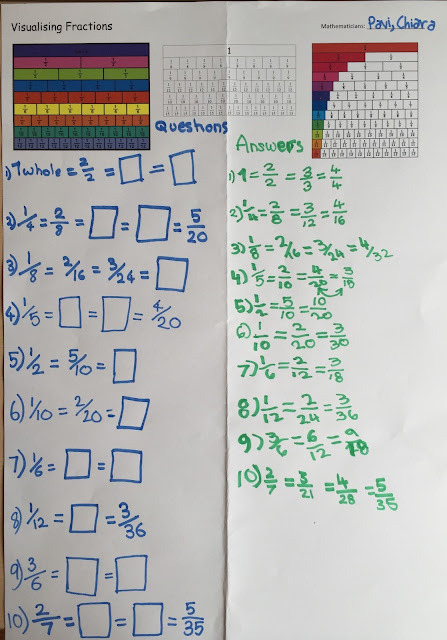 Visualising Fractions
Mathematicians: Pavi, Chiara
1
Questions
1) 1 whole = 2/2 = □ = □
2) 1/4 = 2/8 = □ = □ = 5/20
3) 1/8 = 2/16 = 3/24 = □
4) 1/5 = □ = □ = 4/20
5) 1/2 = 5/10 = □
6) 1/10 = 2/20 = □
7) 1/6 = □ = □
8) 1/12 = □ = 3/36
9) 3/6 = □ = □
10) 2/7 = □ = □ = 5/35
Answers
1) 1 = 2/2 = 3/3 = 4/4
2) 1/4 = 2/8 = 3/12 = 4/16
3) 1/8 = 2/16 = 3/24 = 4/32
4) 1/5 = 2/10 = 4/20 = 3/15
5) 1/2 = 5/10 = 10/20
6) 1/10 = 2/20 = 3/30
7) 1/6 = 2/12 = 3/18
8) 1/12 = 2/24 = 3/36
9) 3/6 = 6/12 = 9/18
10) 2/7 = 3/21 = 4/28 = 5/35